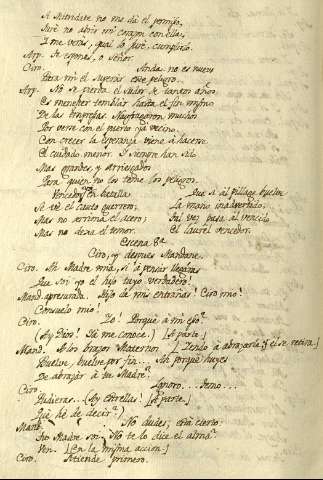 A Mitridate no mas dà el permiso,
Juré no abrir mi corazon con ellas,
Tome veras, qual lo juré, cumplirlo.
Arp. Te espones, o Señor.
Ciro. Anda. no es nuevo
Para mi el superar este peligro.
Arp. No se pierda el sudor de tantos años.
Es menester temblar hasta el fin mismo
De las empresas. Naufragaron muchos
Por verse con el puerto ya vecino.
Con crecer la esperanza viene à hacerse
El cuidado menor. Y siempre han sido
Mas grandes, y arriesgados
Para quien no los teme los peligros.
Vencedor en batalla
Que si al pillage buelve
Se vè el cauto guerrero;
La mano inadvertido;
Mas no arrima el acero;
Tal vez pasa al vencido
Mas no dexa el temor.
El laurel vencedor.
Escena 8ª
Ciro, y despues Mandane.
Ciro. Ah Madre mia, si à pensar llegaras
Que soi yo el hijo tuyo verdadero!
Mand. apresurada. Hijo de mis entrañas! Ciro mio!
Consuelo mio!
Ciro. Yo! Porquè à mi eso?
(Ay Dios! Ya me conoce.) [Aparte.]
Mand. A los brazos Maternos [Yendo à abrazarlo, y el se retira.]
Buelve, buelve por fin... Ah porquè huyes
De abrazár à tu Madre?
Ciro. Ignoro... Temo...
Pudieras... (Ay estrellas! [Aparte.]
Què hé de decir?)
Mand. No dudes; està cierto.
Tu Madre soi. No te lo dice el alma?
Ven. [En la misma accion.]
Ciro. Atiende primero.